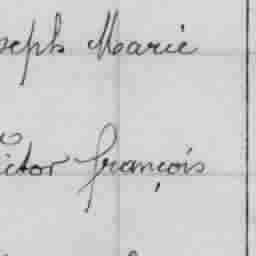 seph Marie
ictor françois